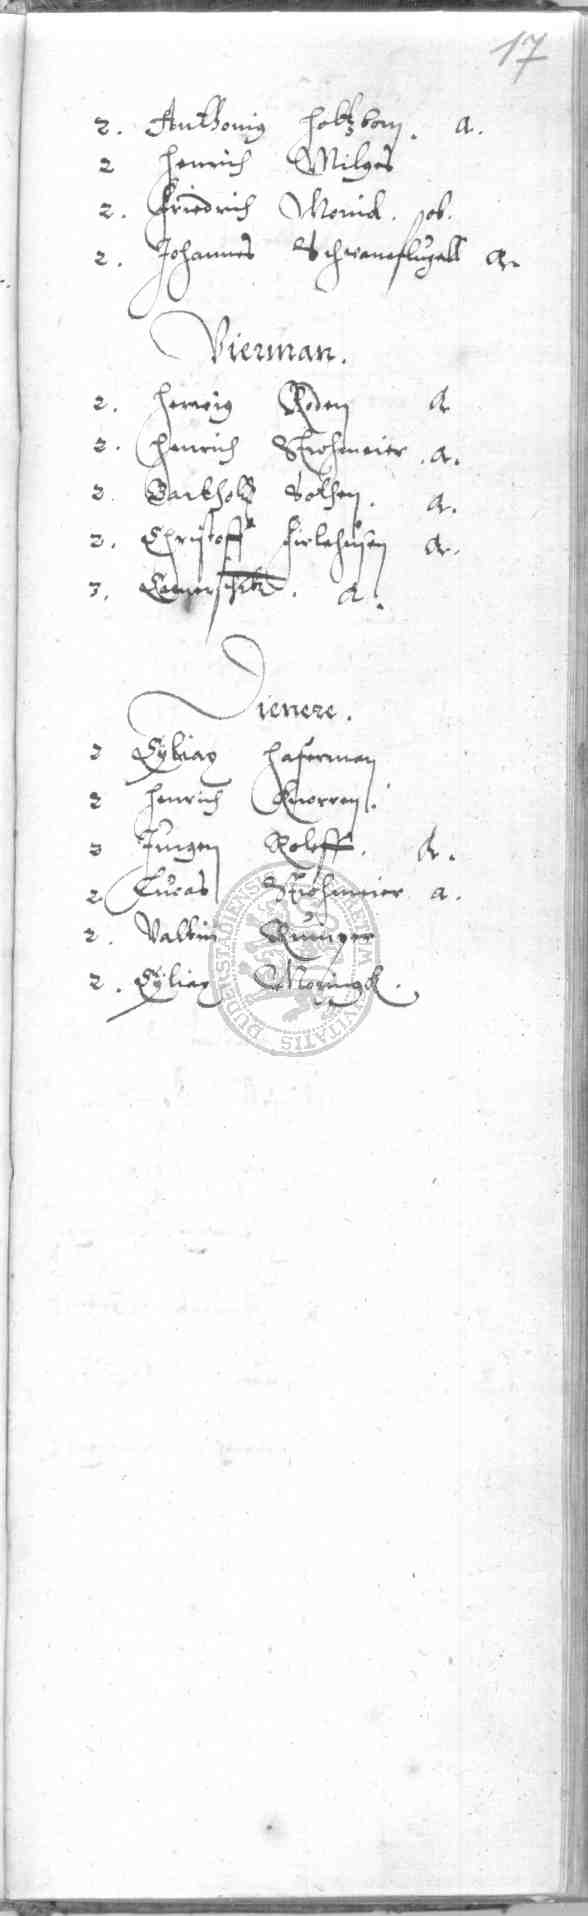 17
2. Anthonig Holtzborn. a.
2 Henrich Milges
2. Friedrich Monid. ob.
2. Johannes Schwaneflugell a.
Vierman.
2. Herwig Roden a
2. Henrich Strohmeier. a.
2. Barkholtz Bolhen. a.
2. Christoff Firlehusen a.
3. a.
Dienere.
2 Cyliax Haferman
2 Henrich Knorren.
3 Jurgen Roleff. a.
2. Lucas Strohmeier a.
2. Valtin Runger
2. Cyliax Moringk.